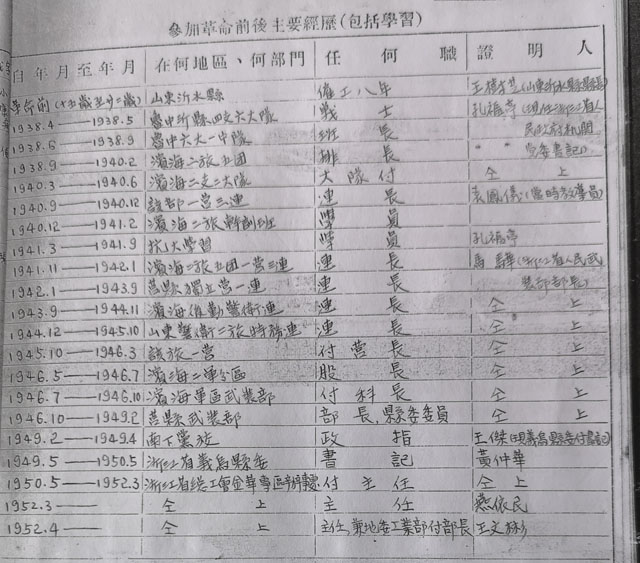 參加革命前後主要經歷(包括學習)
自年月至年月 在何地區、何部門 任何職 證明人
革命前 山東沂水縣 僱工八年
1938.4——1938.5 戰士 孔福亭(現任浙江省人
1938.6——1938.9 魯中六大一中隊 班長 民政府机關
1938.9——1940.2 濱海二旅五团 排長 〃 〃 党委書記)
1940.3——1940.6 濱海二支二大隊 大隊付 仝上
1940.9——1940.12 該部一营三連 連長 袁鳳儀(當時教導員)
1940.12——1941.2 濱海二旅 學員
1941.3——1941.9 抗大學習 學員 孔福亭
1941.11——1942.1 濱海二旅五团一营三連 連長 馬驊(浙江省人民武
1942.1——1943.9 莒縣獨立营二連 連長 裝部部長)
1943.9——1944.11 濱海 警衛連 連長 仝上
1944.12——1945.10 山東警衛二旅特務連 連長 仝上
1945.10——1946.3 該旅一营 付营長 仝上
1946.5——1946.7 濱海二軍分區 股長 仝上
1946.7——1946.10 濱海軍區武裝部 付科長 仝上
1946.10——1949.2 莒縣武裝部 部長,縣委委員 仝上
1949.2——1949.4 南下 政指 王傑(現義烏縣委付書記)
1949.5——1950.5 浙江省義烏縣委 書記 黃仲華
1950.5——1952.3 浙江省総工會金華專區辦事處 付主任 仝上
1952.3—— 仝上 主任 燕依民
1952.4—— 仝上 主任,兼地委工業部付部長